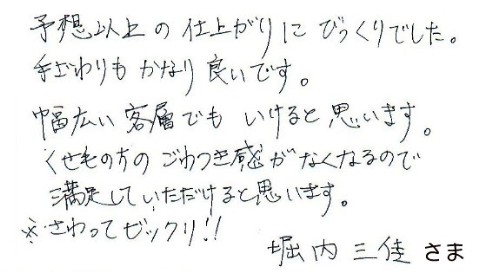 予想以上の仕上がりにびっくりでした。
手ざわりもかなり良いです。
幅広い客層でもいけると思います。
くせ毛の方のごわつき感がなくなるので
満足していただけると思います。
※さわってビックリ!!
堀内三佳さま